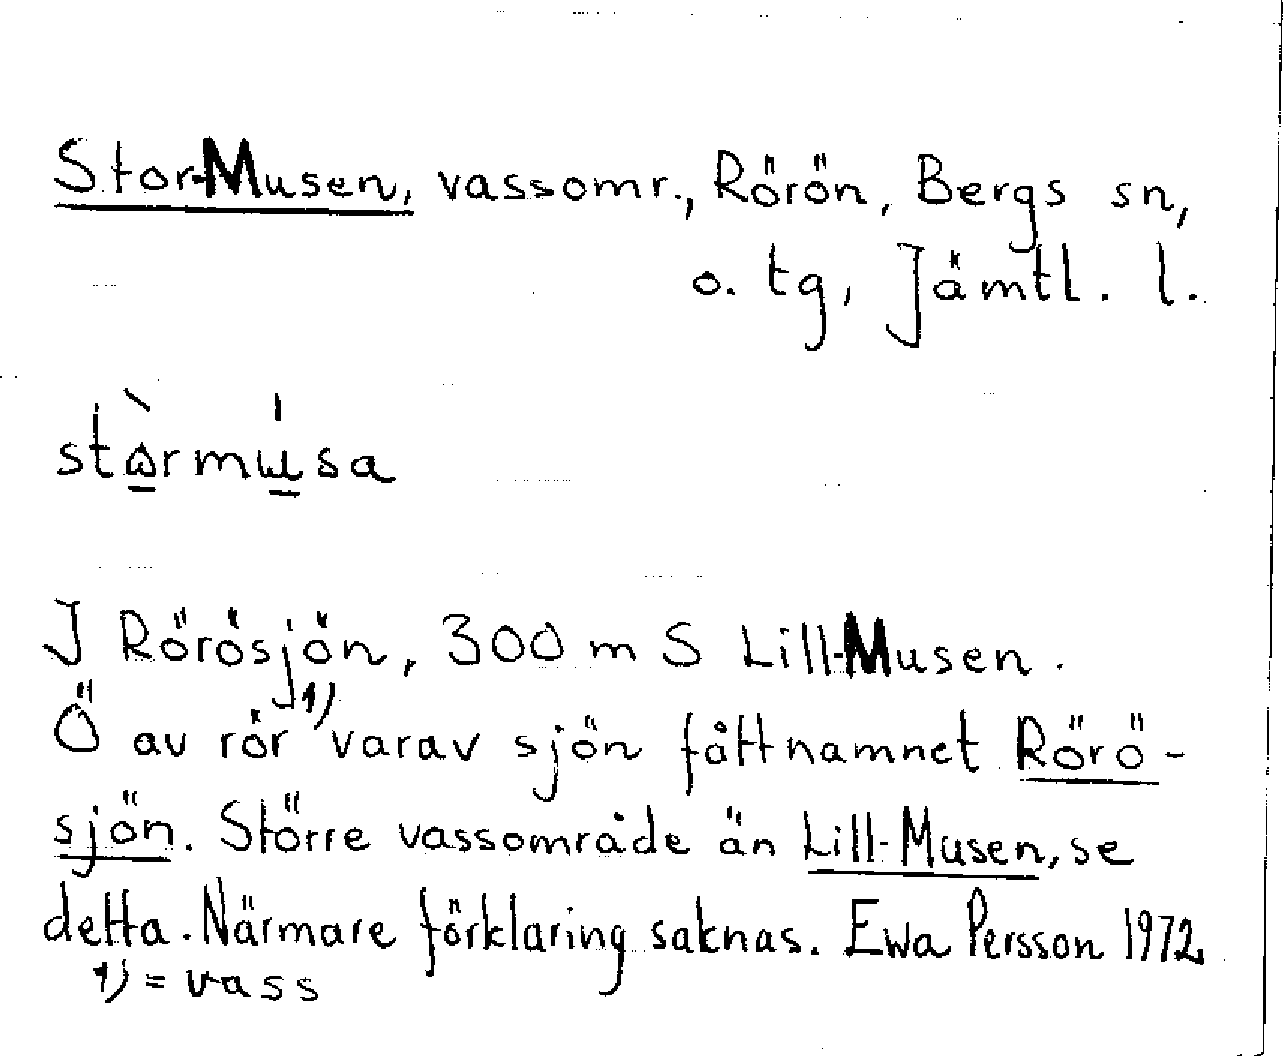 Stor-Musen, vassomr., Rörön, Bergs sn,
o. tg, Jämtl. l.
stàrmu̍sa
I Rörösjön, 300 m S Lill-Musen.
Ö av rör 1) varav sjön fått namnet Rörö-
sjön. Större vassområde än Lill-Musen, se
detta. Närmare förklaring saknas. Ewa Persson 1972
1) = vass